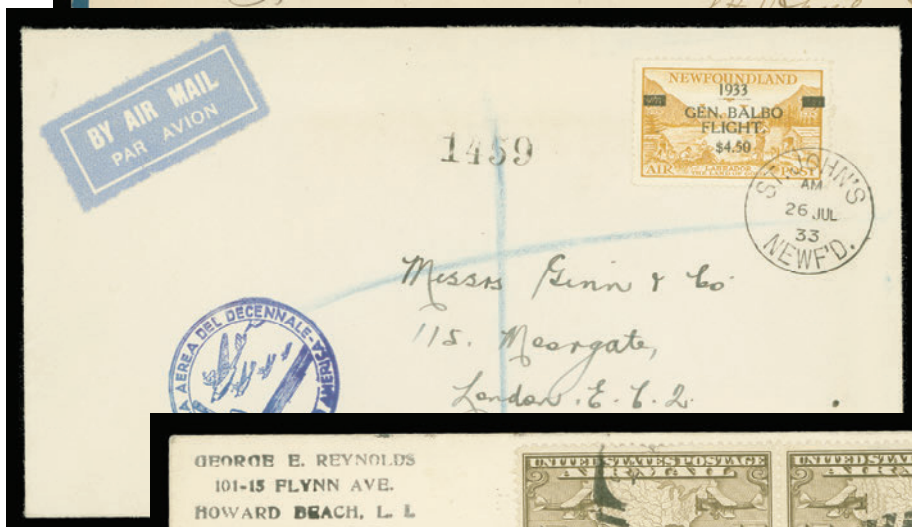 BY AIR MAIL
PAR AVION
NEWFOUNDLAND
1933
GEN. BALBO
FLIGHT.
$4.50
LABRADOR
AIR POST
1459
ST. JOHN'S
AM
26 JUL
33
NEWF'D.
Messrs Ginn & Co
115. Moorgate,
London. E. C. 2.
AEREA DEL DECENNALE-
GEORGE E. REYNOLDS
101-15 FLYNN AVE.
HOWARD BEACH, L. I.
UNITED STATES POSTAGE
AIR MAIL
UNITED STATES POSTAGE
AIR MAIL